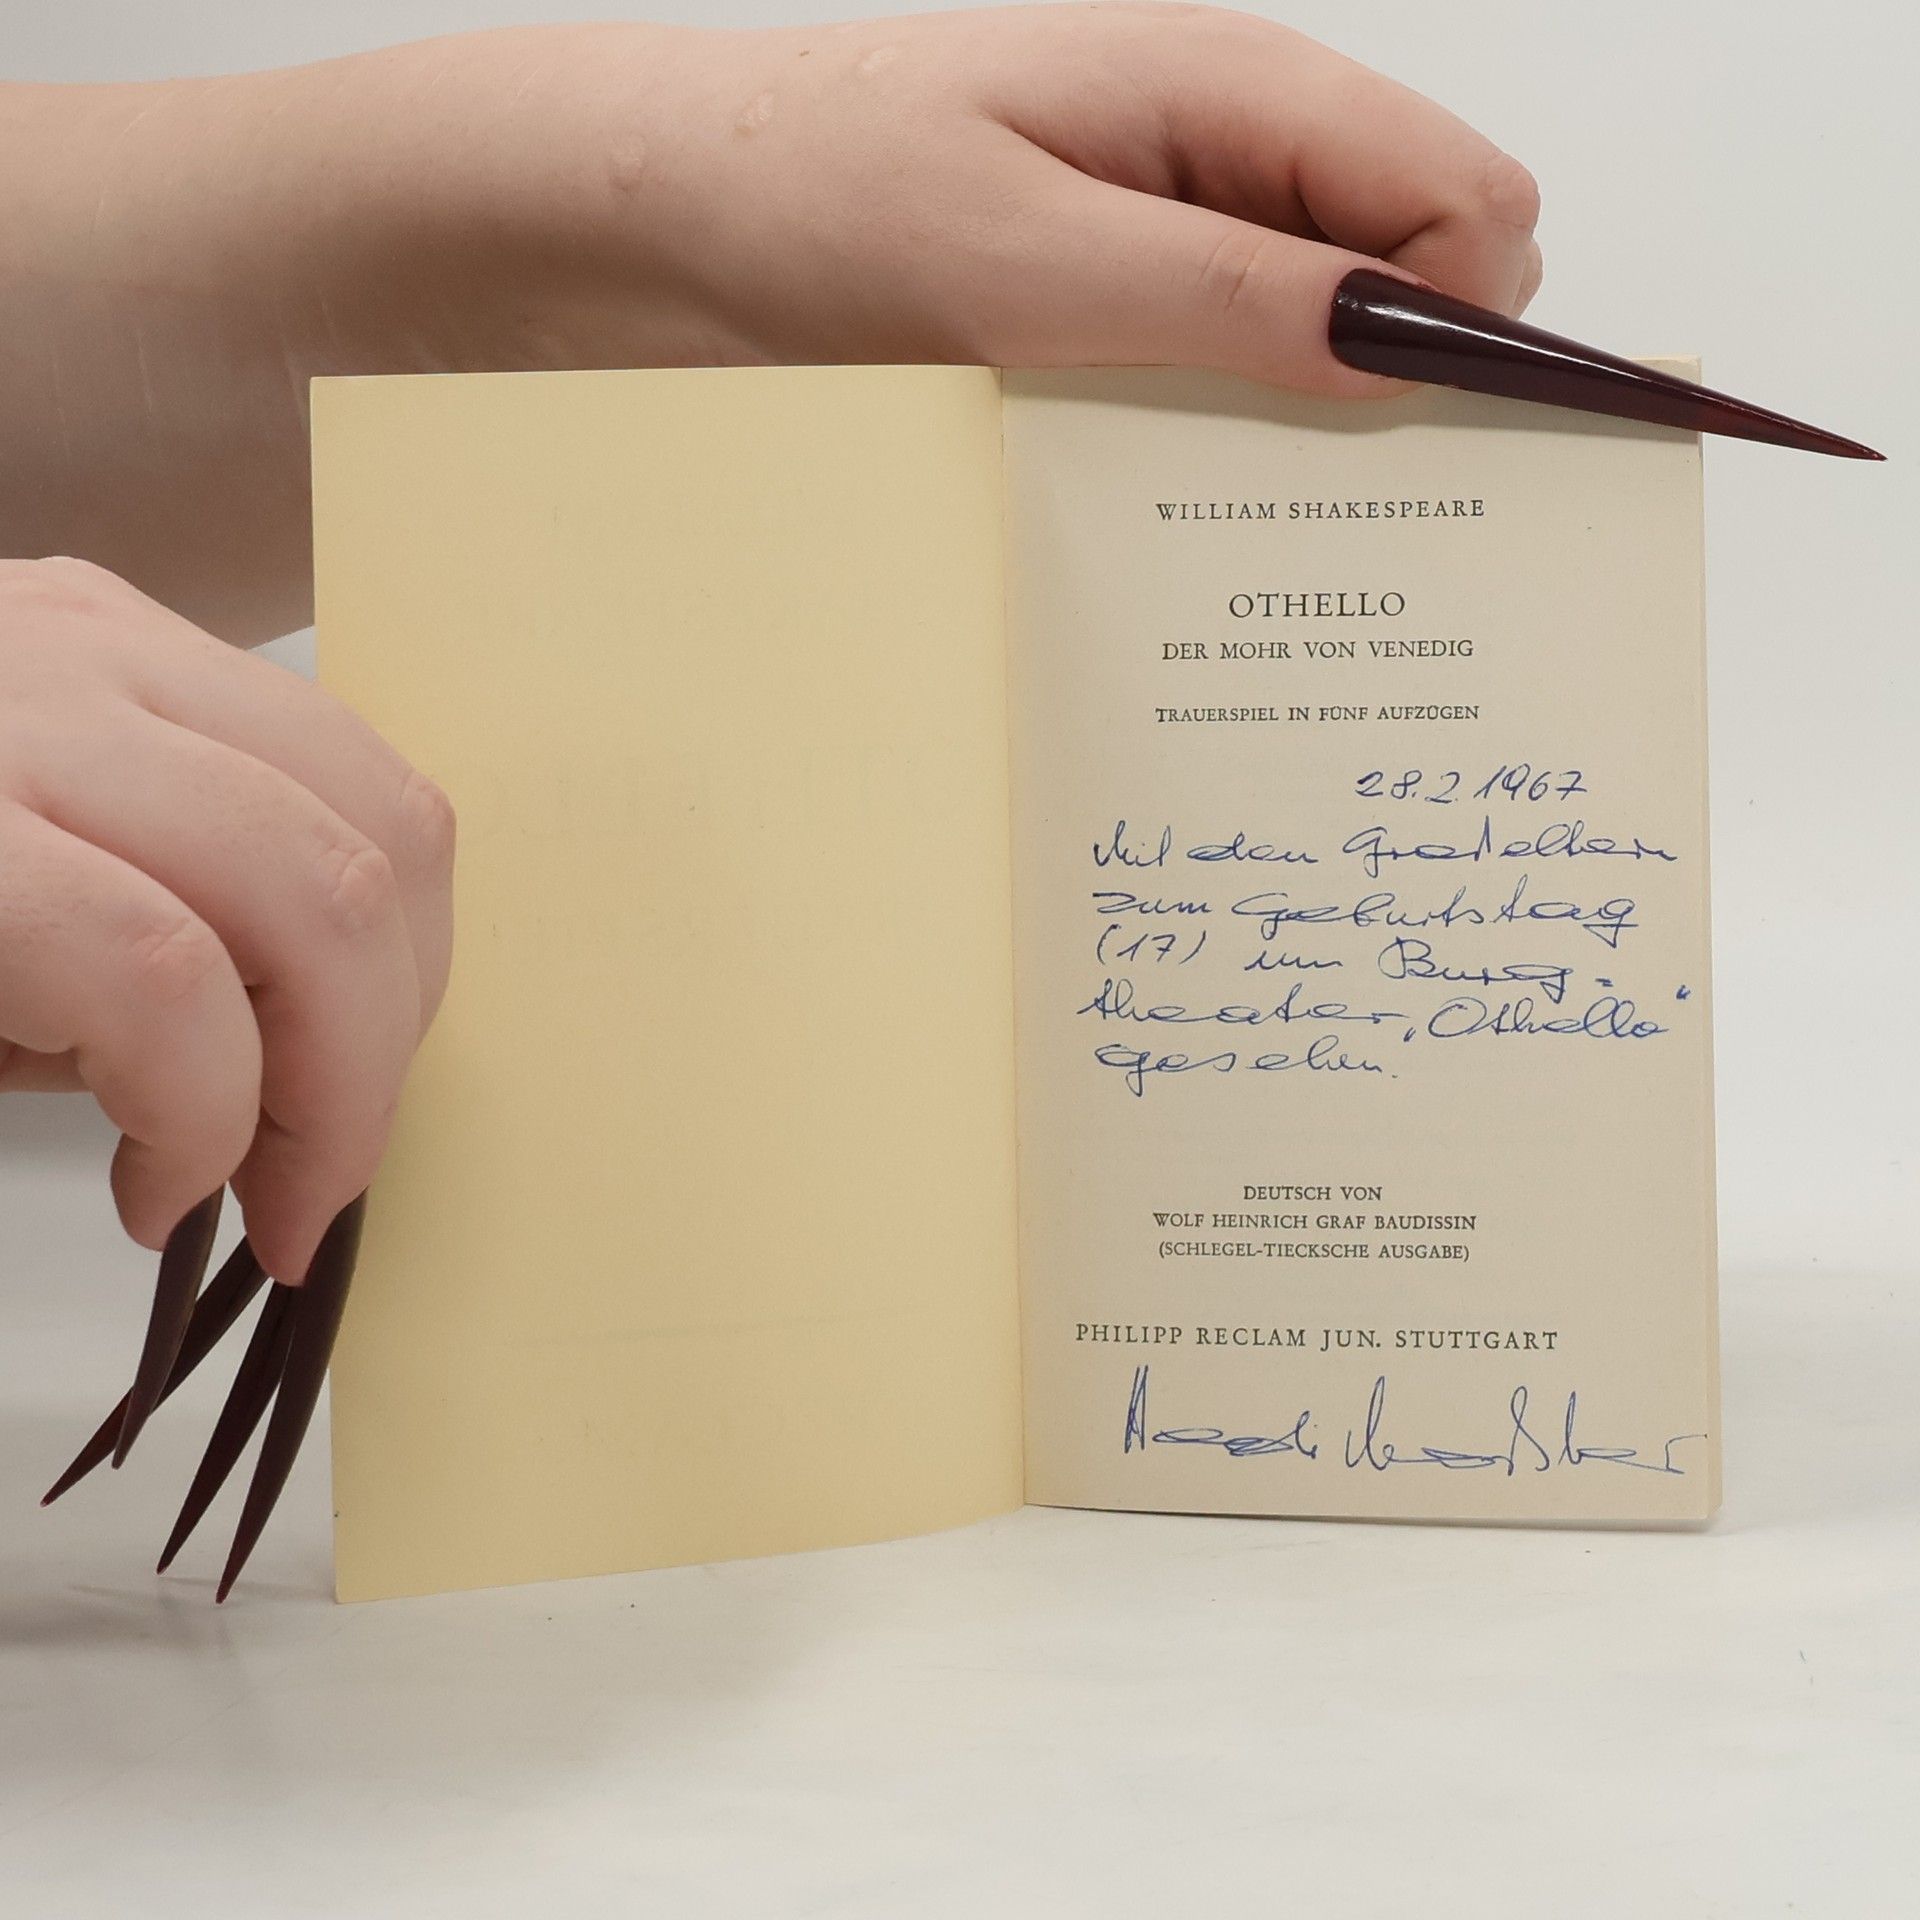 WILLIAM SHAKESPEARE
OTHELLO
DER MOHR VON VENEDIG
TRAUERSPIEL IN FÜNF AUFZÜGEN
28.2.1967
Mit den Großeltern
zum Geburtstag
(17) im Burg-
theater „Othello“
gesehen.
DEUTSCH VON
WOLF HEINRICH GRAF BAUDISSIN
(SCHLEGEL-TIECKSCHE AUSGABE)
PHILIPP RECLAM JUN. STUTTGART